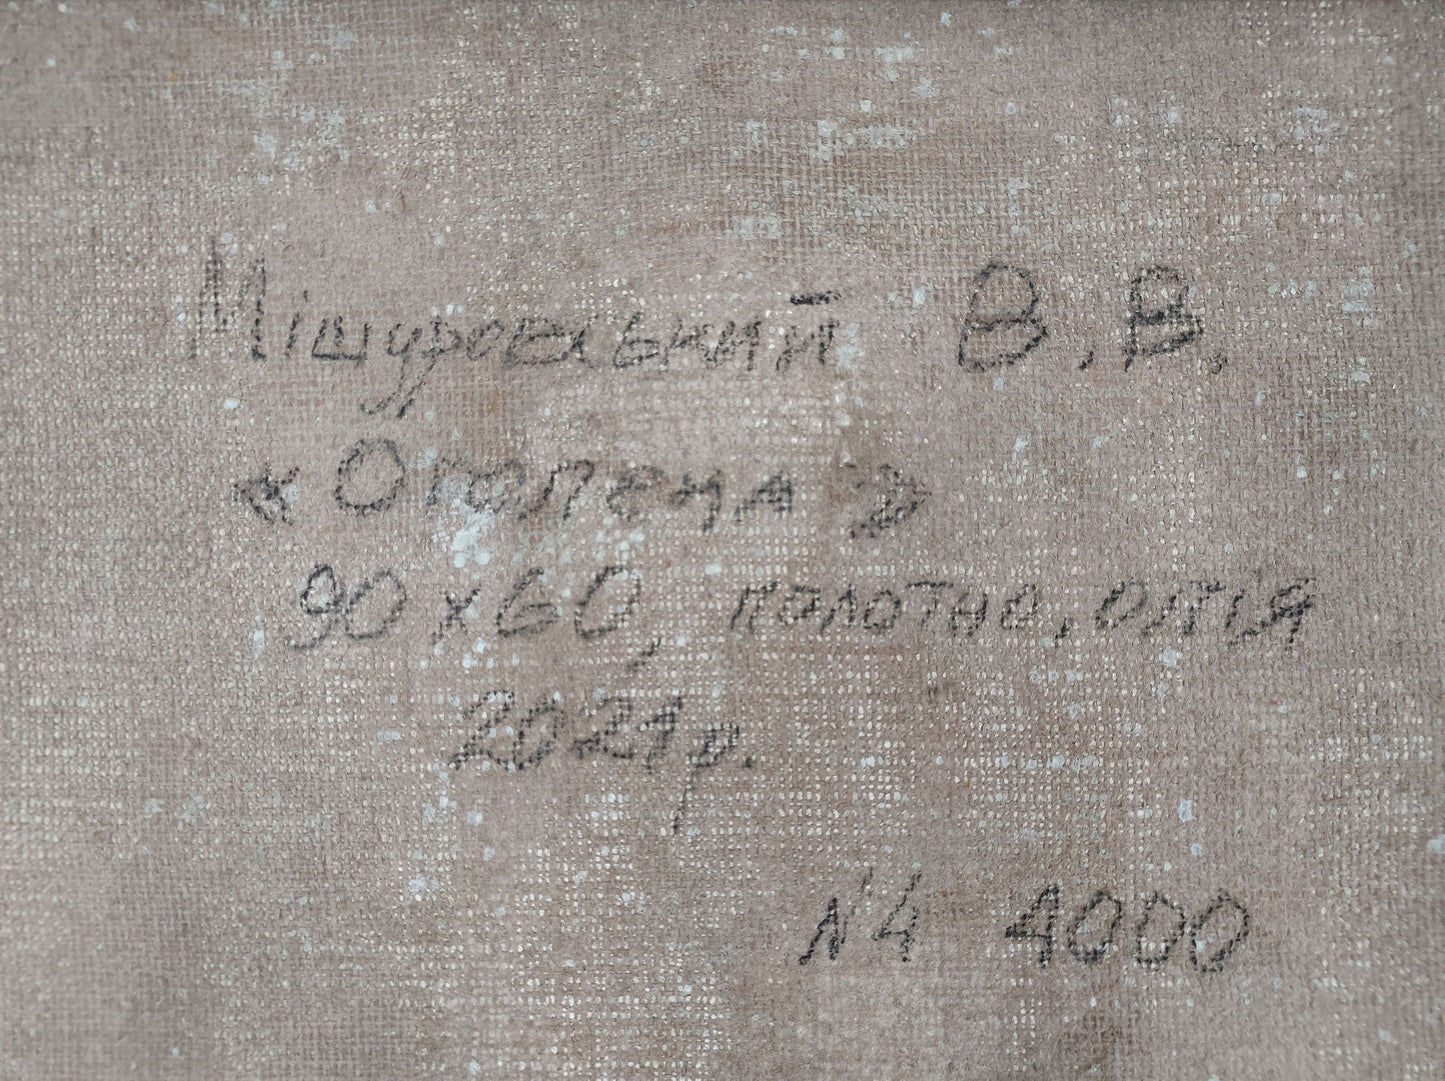 Мішуровський В.В.
«Оголена»
90х60, полотно, олія
2021р.
N4 4000